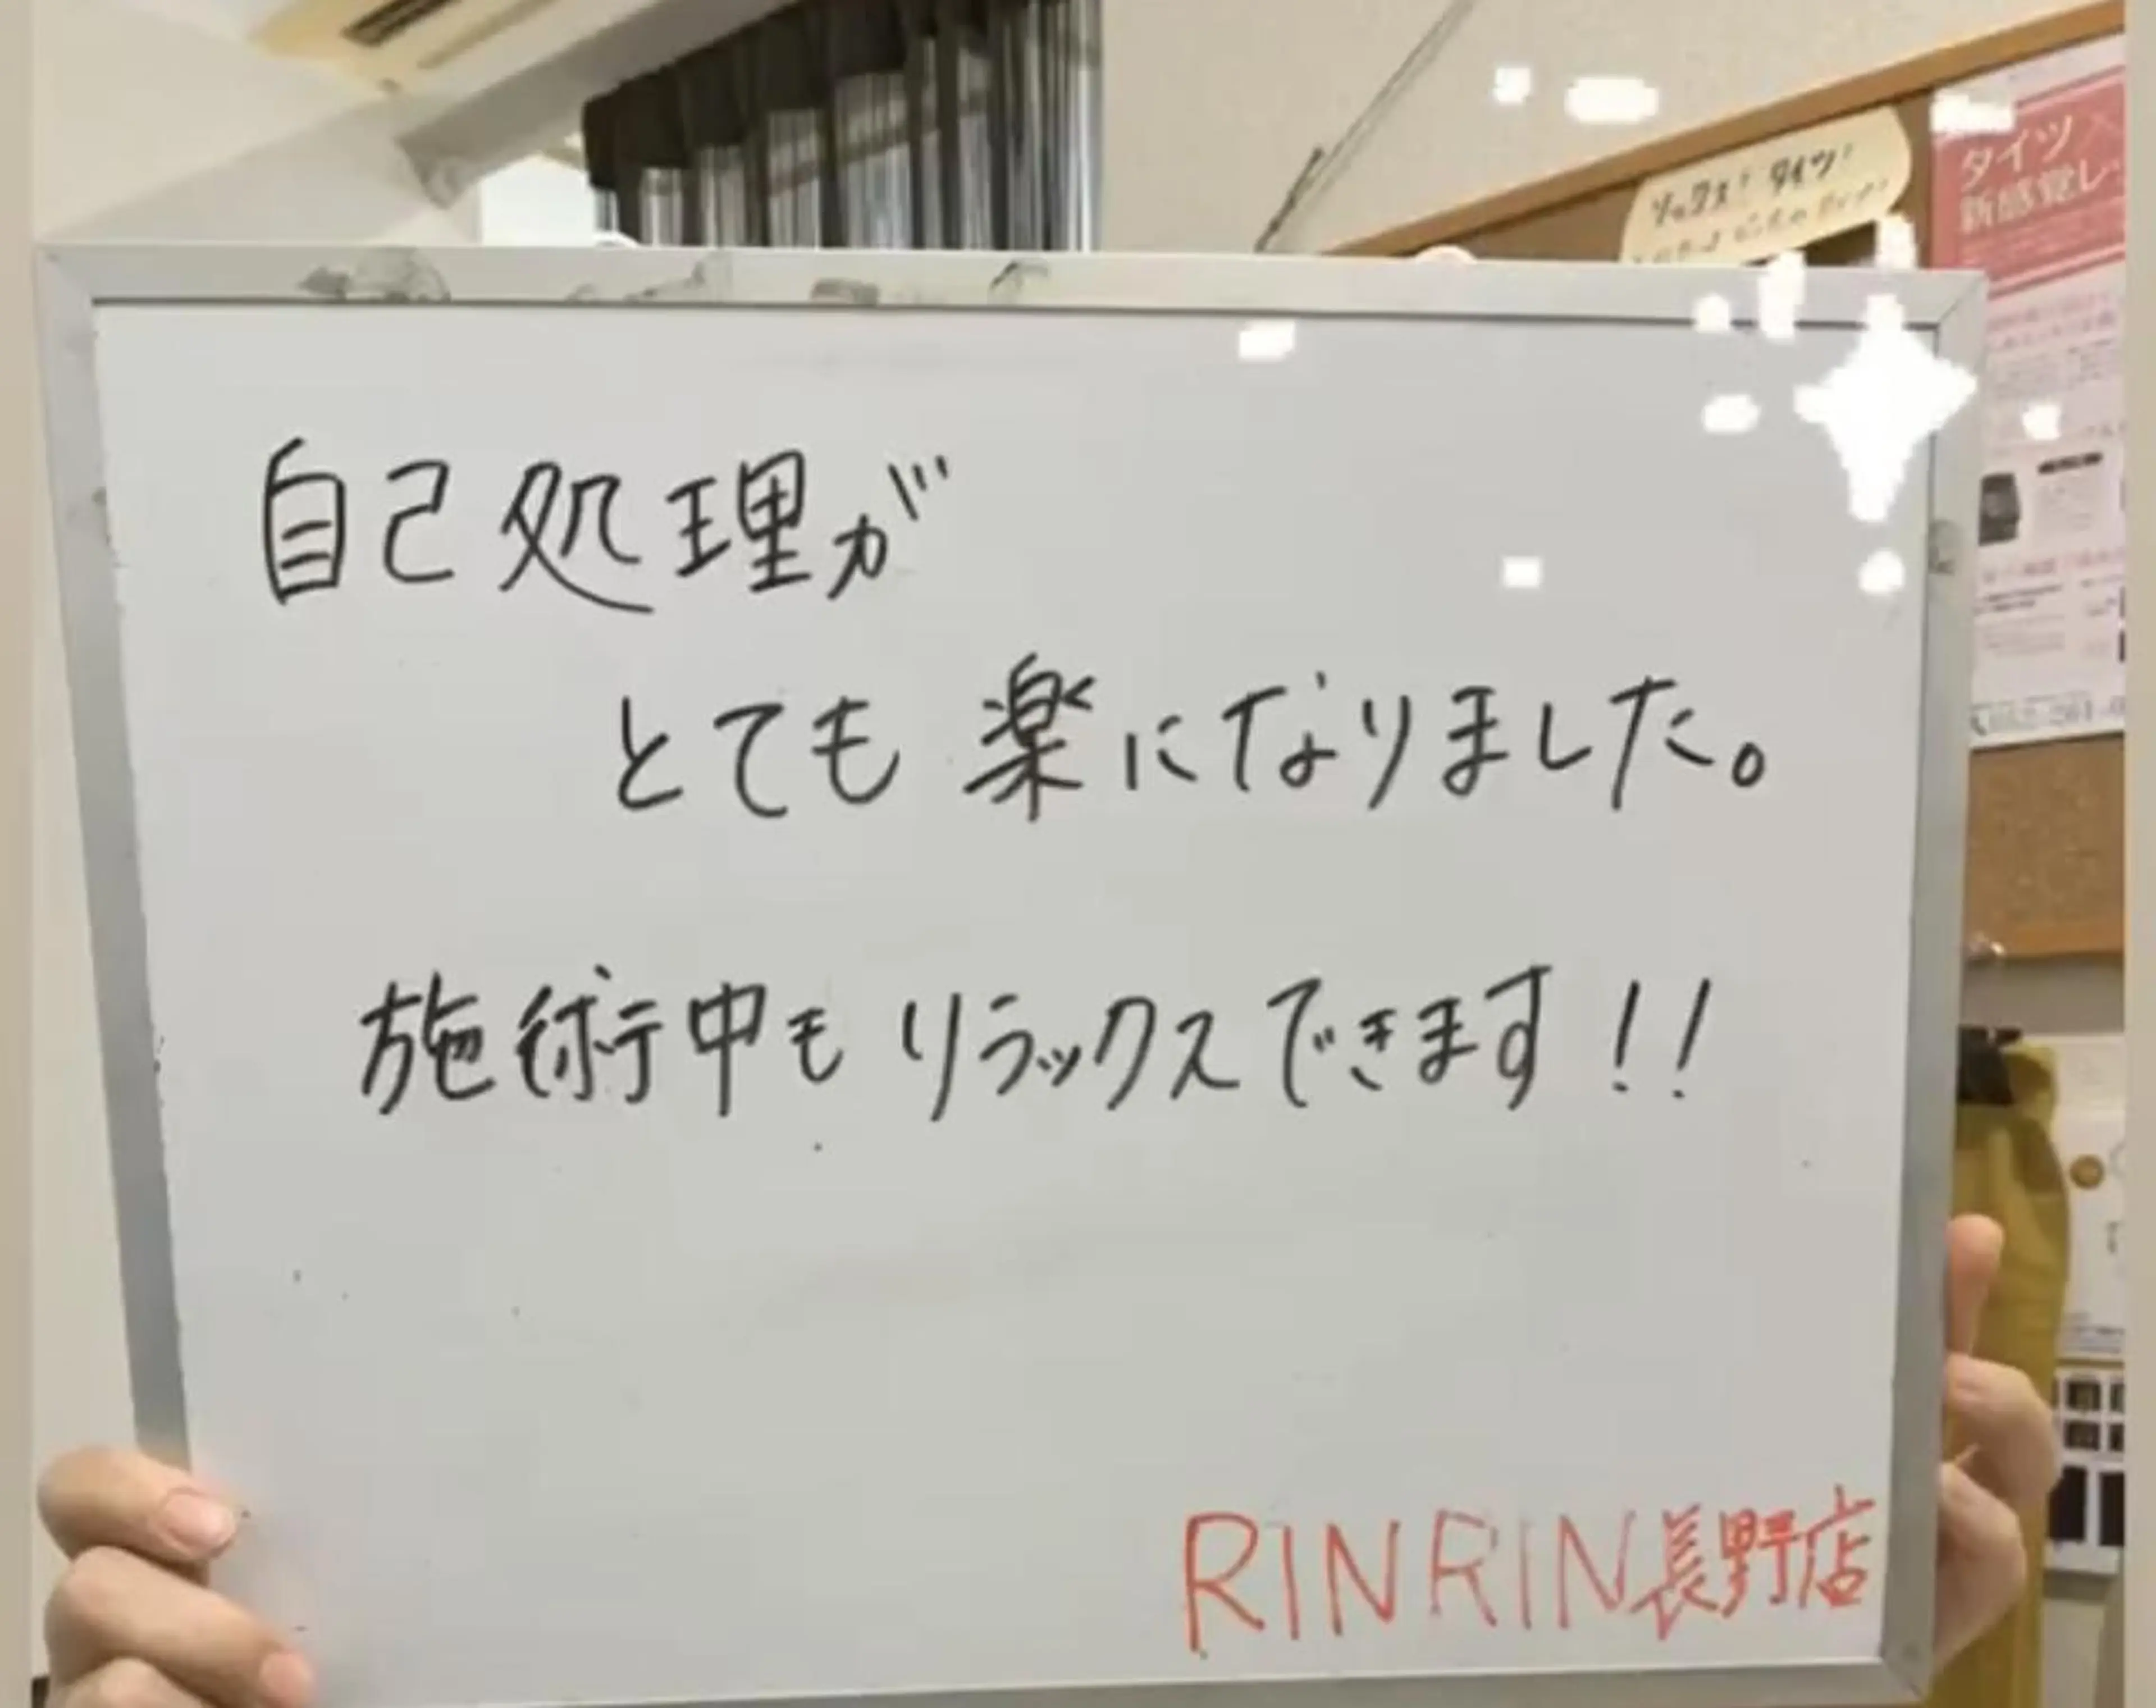 タイツ
新感覚レ
ソックス! タイツ!
自己処理が
とても楽になりました。
施術中もリラックスできます!!
RINRIN長野店